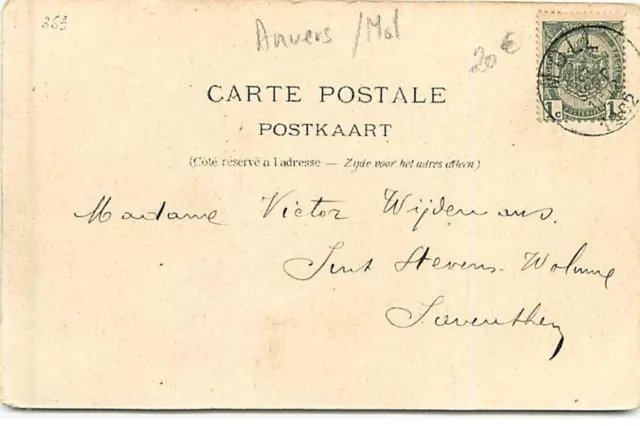 363
Anvers / Mol
20 €
MOLL
1902
1c 1c
CARTE POSTALE
POSTKAART
(Côté réservé a l adresse — Zyde voor het adres alleen)
Madame Victor Wijdemans.
Sint Stevens Woluwe
Saventhem